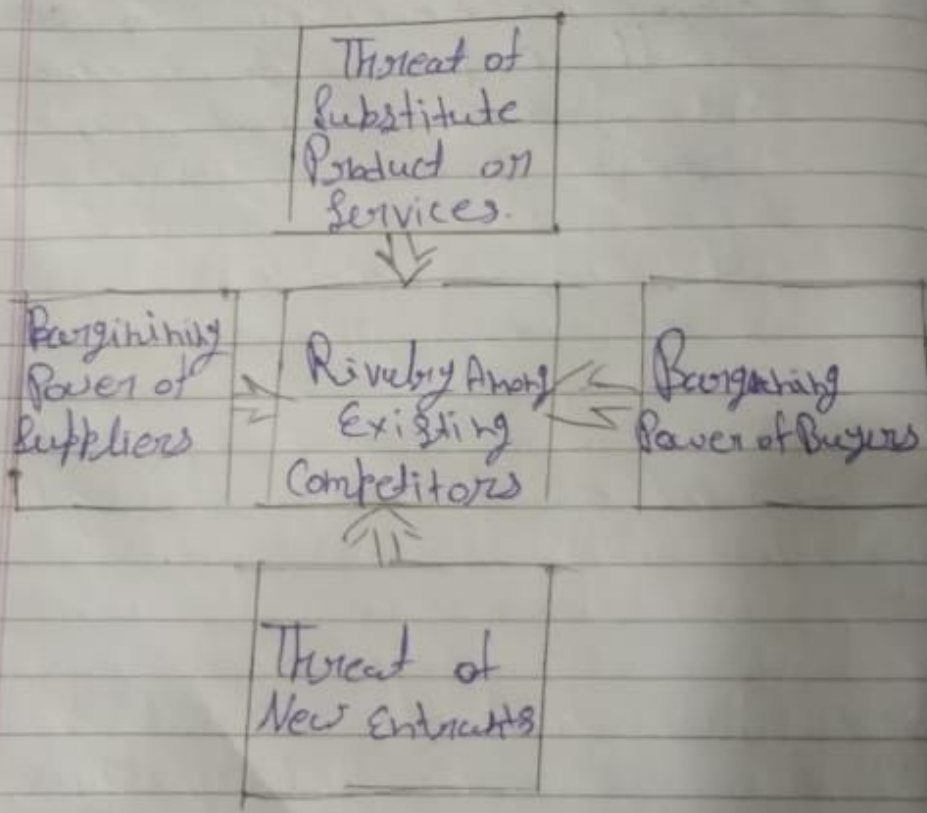 Threat of
Substitute
Product or
Services.
Bargininig
Power of
Suppliers
Rivalry Among
Existing
Competitors
Bargaining
Power of Buyers
Threat of
New Entrants